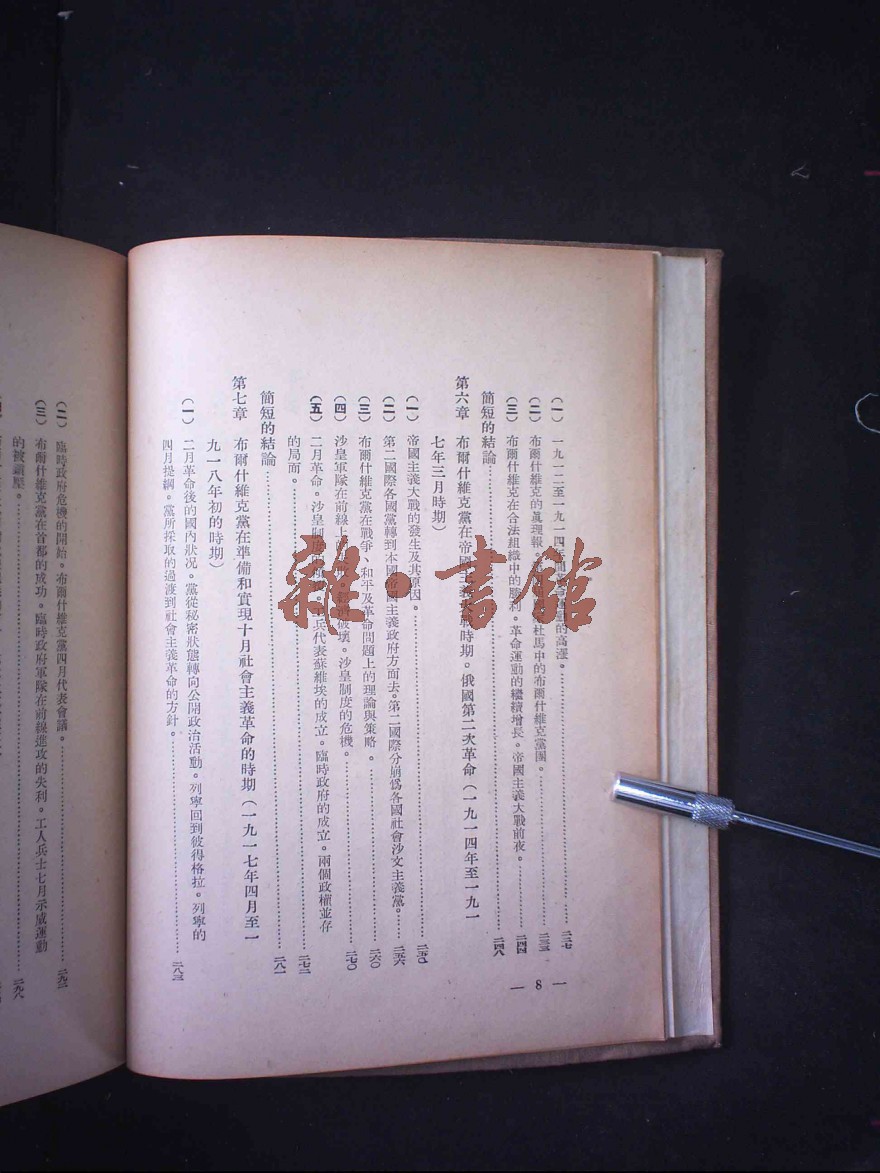 (一) 一九一二至一九一四年 的高漲。 二二七
(二) 布爾什維克的眞理報。 杜馬中的布爾什維克黨團。 二三三
(三) 布爾什維克在合法組織中的勝利。革命運動的繼續增長。帝國主義大戰前夜。 二四四
簡短的結論 二四八
第六章 布爾什維克黨在帝國主義大戰時期。俄國第二次革命(一九一四年至一九一
七年三月時期)
(一) 帝國主義大戰的發生及其原因。 二五〇
(二) 第二國際各國黨轉到本國帝國主義政府方面去。第二國際分崩爲各國社會沙文主義黨。 二五六
(三) 布爾什維克黨在戰爭、和平及革命問題上的理論與策略。 二六〇
(四) 沙皇軍隊在前線上的 破壞。沙皇制度的危機。 二七〇
(五) 二月革命。沙皇制度 兵代表蘇維埃的成立。臨時政府的成立。兩個政權並存
的局面。 二七二
簡短的結論 二八一
第七章 布爾什維克黨在準備和實現十月社會主義革命的時期(一九一七年四月至一
九一八年初的時期)
(一) 二月革命後的國內狀况。黨從秘密狀態轉向公開政治活動。列寧回到彼得格拉。列寧的
四月提綱。黨所採取的過渡到社會主義革命的方針。 二八三
— 8 —
(二) 臨時政府危機的開始。布爾什維克黨四月代表會議。
(三) 布爾什維克黨在首都的成功。臨時政府軍隊在前線進攻的失利。工人兵士七月示威運動
的被鎭壓。 二九八
雜·書館